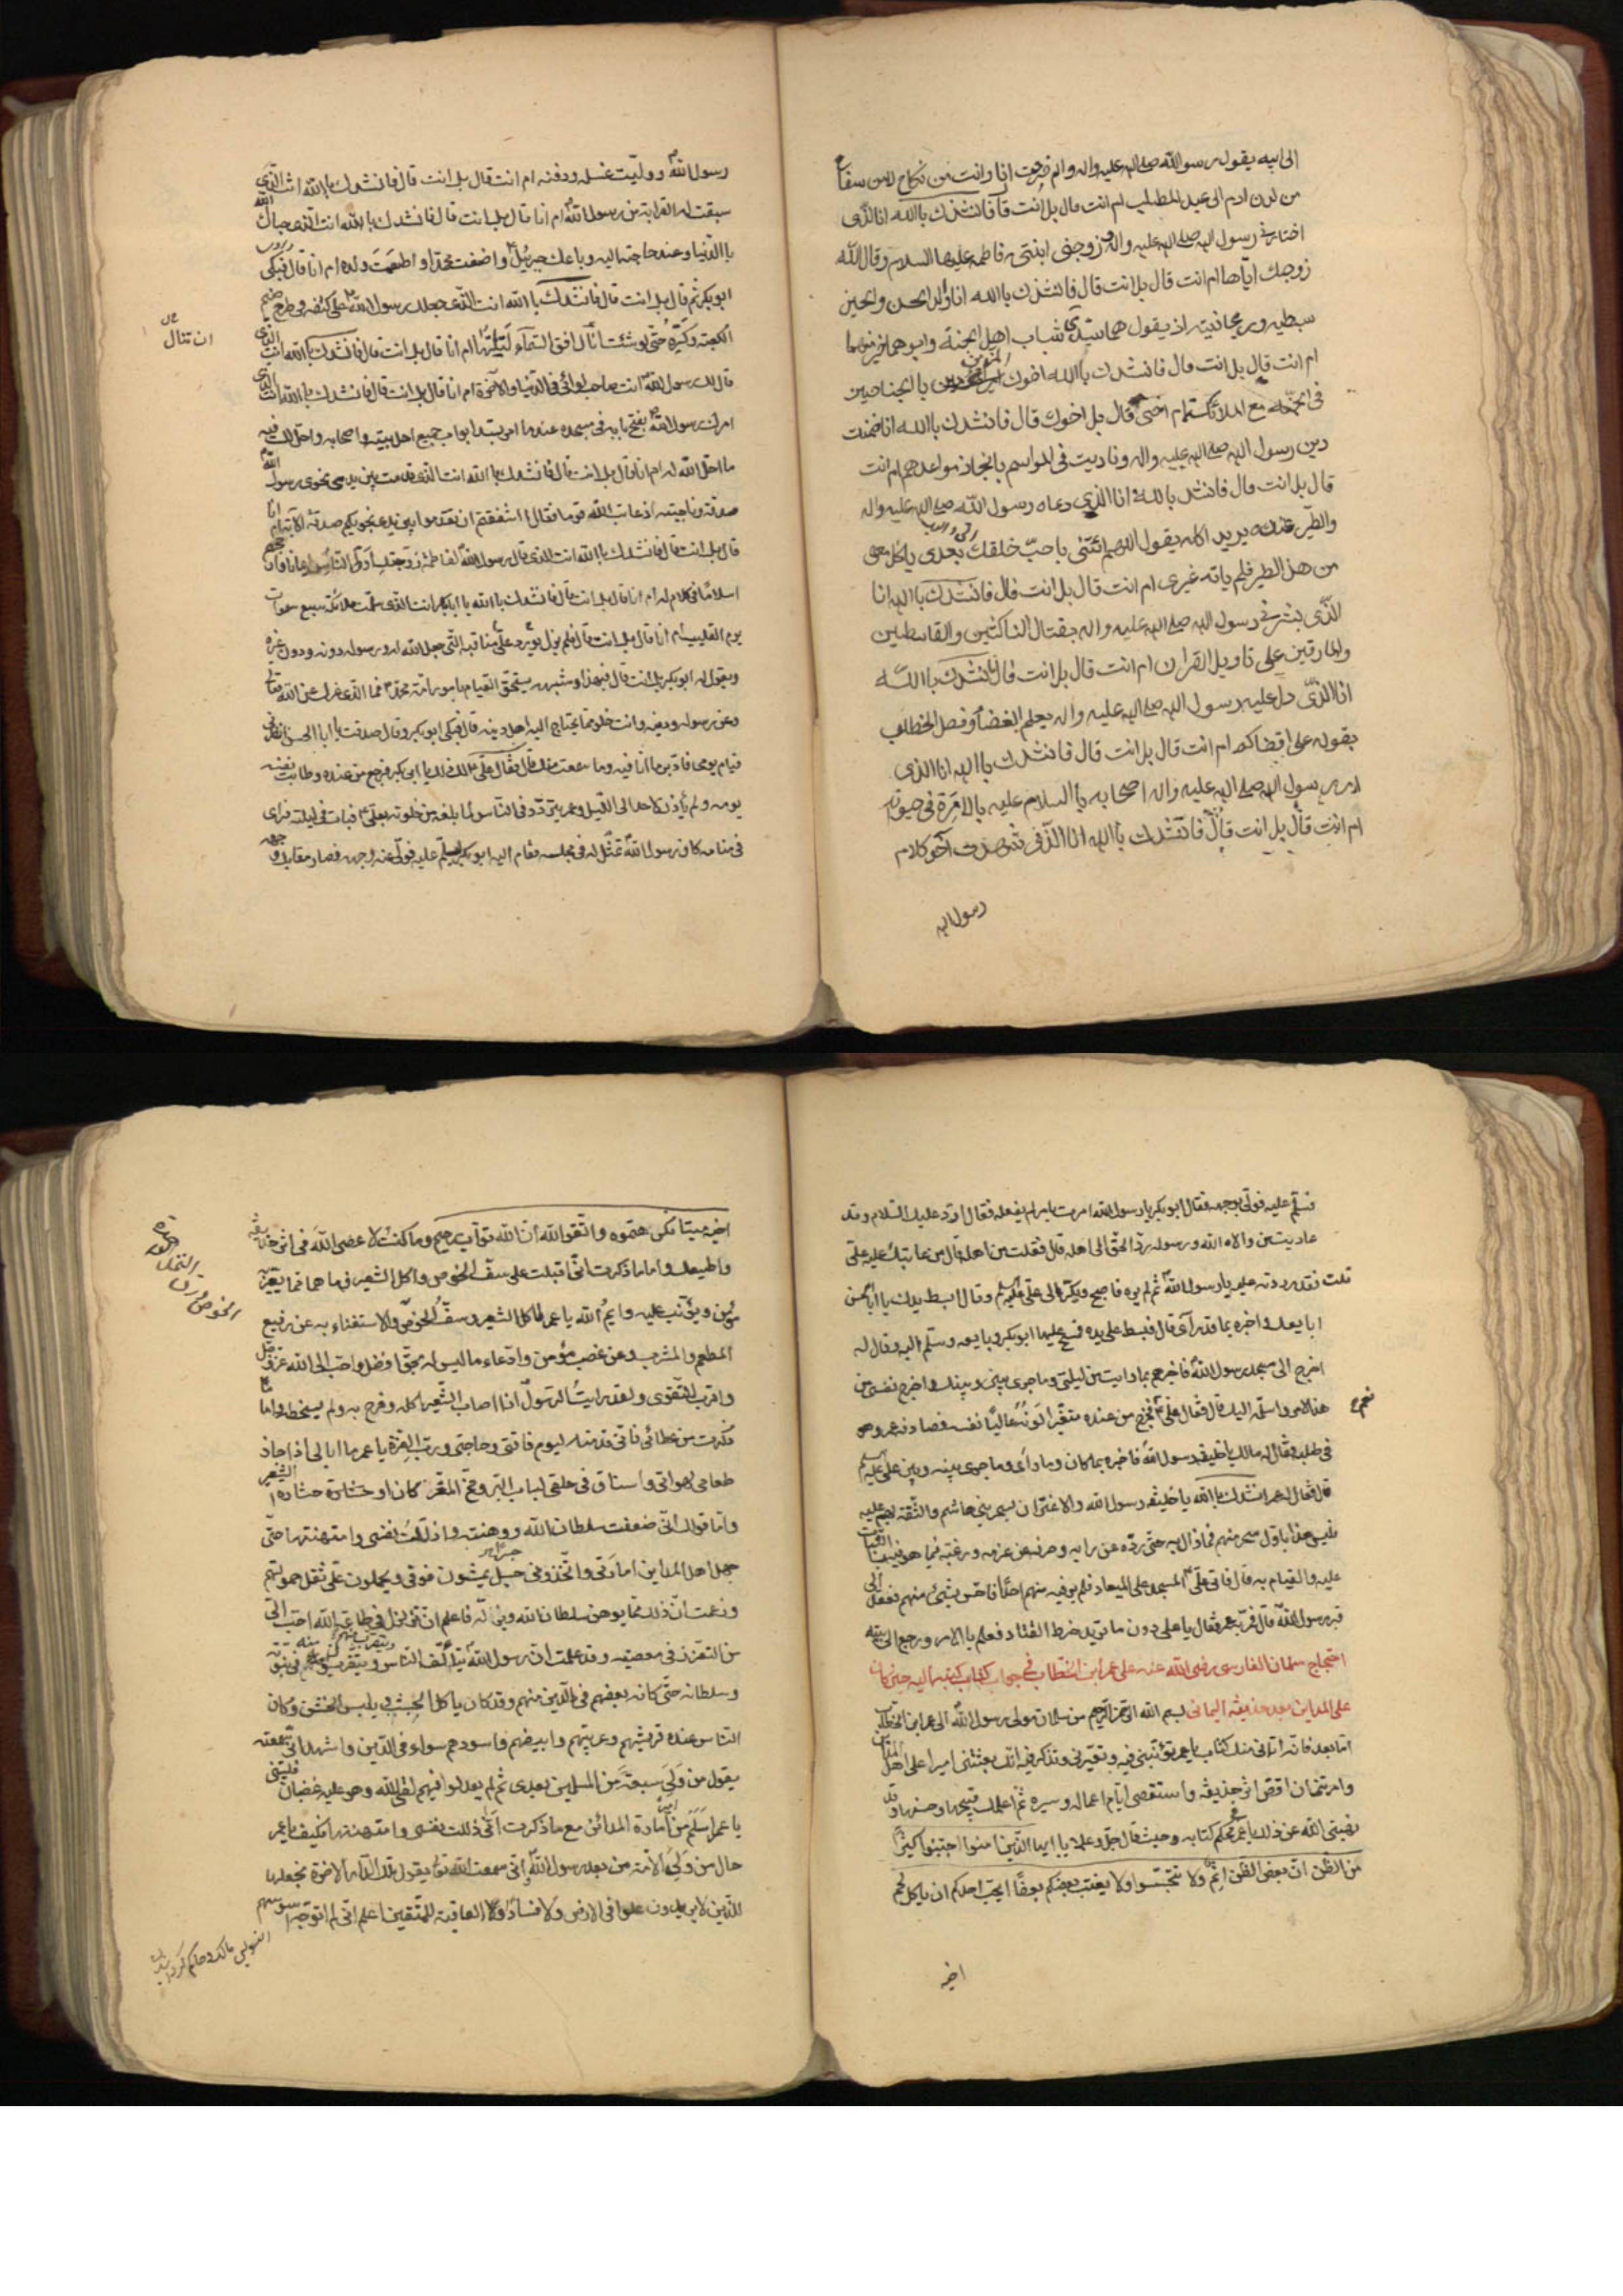 الى ابيه يقول رسول الله صلى الله عليه واله والم خرجت انا وانت من نكاح لا من سفاح
من لدن ادم الى عبد المطلب ام انت قال بل انت قال فانشدك بالله انا الذى
اختارنى رسول الله صلى الله عليه واله و زوجنى ابنته فاطمه عليها السلام وقال الله
زوجك اياها ام انت قال بل انت قال فانشدك باالله انا والد الحسن والحسين
سبطيه وريحانتيه اذ يقول هما سيدى شباب اهل الجنة وابوهما خير منهما
ام انت قال بل انت قال فانشدك باالله اخوك المزين بالجناحين
فى الجنة مع الملائكة ام اخى قال بل اخوك قال فانشدك باالله انا ضمنت
دين رسول الله صلى الله عليه واله وناديت فى المواسم بانجاز مواعده ام انت
قال بل انت قال فانشدك بالله انا الذى دعاه رسول الله صلى الله عليه واله
والطير عنده يريد اكله يقول اللهم ائتنى باحب خلقك بعدى ياكل معى
من هذا الطير فلم ياته غيرى ام انت قال بل انت قال فانشدك باالله انا
الذى بشرنى رسول الله صلى الله عليه واله بقتال الناكثين والقاسطين
والمارقين على تاويل القران ام انت قال بل انت قال فانشدك باالله
انا الذى دل عليه رسول الله صلى الله عليه واله بعلم القضاء وفصل الخطاب
بقوله على اقضاكم ام انت قال بل انت قال فانشدك باالله انا الذى
امر رسول الله صلى الله عليه واله اصحابه باالسلام عليه بالامرة فى حيوته
ام انت قال بل انت قال فانشدك باالله انا الذى شهدت آخر كلام
رسول الله
رسول الله ووليت غسله ودفنه ام انت قال بل انت قال فانشدك باالله انت الذى
سبقت له القرابة من رسول الله ام انا قال بل انت قال فانشدك باالله انت الذى حباك الله
باالدنيا وعند حاجته اليه وباعك جبرئيل واضفت محمدا واطعمت ولده ام انا قال فبكى
ابو بكر ثم قال بل انت قال فانشدك باالله انت الذى جعلك رسول الله على كتفه فى طرح صنم
الكعبة وكسره حتى لو شئت ان انال افق السماء لنلتها ام انا قال بل انت قال فانشدك باالله انت الذى
ان تنال
قال لك رسول الله انت صاحب لوائى فى الدنيا والاخرة ام انا قال بل انت قال فانشدك باالله انت الذى
امرك رسول الله بفتح بابه فى مسجده عندما امر بسد ابواب جميع اهل بيته واصحابه واحل لك فيه
ما احل الله له ام انا قال بل انت قال فانشدك باالله انت الذى قدمت بين يدى نجوى رسول الله
صدقة وناجيته اذ عاتب الله قوما فقال ااشفقتم ان تقدموا بين يدى نجويكم صدقة الاية ام انا
قال بل انت قال فانشدك باالله انت الذى قال رسول الله لفاطمة زوجتك اول الناس ايمانا وارجحهم
اسلاما فى كلام له ام انا قال بل انت قال فانشدك باالله يا ابابكر انت الذى سلمت ملائكة سبع سموات
يوم القليب ام انا قال بل انت قال فلم يزل يورد على مناقبه التى جعل الله له ورسوله دونه ودون غيره
ويقول له ابو بكر بل انت قال فبهذا وشبهه يستحق القيام بامور امة محمد فما الذى غرك عن الله تعالى
وعن رسوله ودينه وانت خلو مما يحتاج اليه اهل دينه قال فبكى ابو بكر وقال صدقت يا ابا الحسن انظرنى
قيام يومى فادبر ما انا فيه وما سمعت منك قال فقال على لك ذلك يا ابى بكر فرجع من عنده وطابت نفسه
يومه ولم يأذن لاحد الى الليل وعمر يتردد فى الناس لما بلغه من خلوته بعلى فبات فى ليلته فراى
فى منامه كان رسول الله تمثل له فى مجلسه فقام اليه ابو بكر ليسلم عليه فولى عنه وجهه فصار مقابل وجهه
فسلم عليه فولى بوجهه فقال ابو بكر يا رسول الله امرت بامر لم يفعله فقال ارد عليك السلام وقد
عاديت من والاه الله ورسوله رد الحق الى اهله قال فقلت من اهله قال من عاتبك عليه على
قلت فقد رددته عليه يا رسول الله ثم لم يره فاصبح وبكر الى على وقال ابسط يدك يا ابا الحسن
ابايعك واخبره بما قد رآى قال فبسط على يده فمسح عليها ابو بكر وبايعه وسلم اليه وقال له
اخرج الى مسجد رسول الله فاخبرهم بما رايت من ليلتى وما جرى بينى وبينك واخرج نفسى من
هذا الامر واسلمه اليك قال فقال على نعم فخرج من عنده متغيرا لونه عاليا نفسه فصادفه عمر وهو
نعم
فى طلبه فقال له مالك يا خليفه رسول الله فاخبره بما كان وما راى وما جرى بينه وبين على عليه السلم
قال فقال له عمر انشدك باالله يا خليفه رسول الله والاغترار بسحر بنى هاشم والثقة بهم
فليس هذا باول سحر منهم فما زال به حتى رده عن رايه وصرفه عن عزمه ورغبه فيما هو فيه والثبات
عليه والقيام به قال فاتى على المسجد على الميعاد فلم ير فيه منهم احدا فاحس بشىء منهم فقعد الى
قبر رسول الله قال فمر به عمر فقال يا على دون ما تريد خرط القتاد فعلم باالامر ورجع الى بيته
احتجاج سلمان الفارسى رضى الله عنه على عمر ابن الخطاب فى جواب كتاب كتبه اليه حين كان
على المداين بعد حذيفة اليمانى بسم الله الرحمن الرحيم من سلمان مولى رسول الله الى عمر ابن الخطاب
اما بعد فانه اتانى منك كتاب يا عمر تؤنبنى فيه وتعيرنى وتذكر فيه انك بعثتنى اميرا على اهل المداين
وامرتنى ان اقص اثر حذيفه واستقصى ايام اعماله وسيره ثم اعلمك قبيحها وحسنها وقد
نهينى الله عن ذلك يا عمر فى محكم كتابه وحيث قال جل وعلا يا ايها الذين امنوا اجتنبوا كثيرا
من الظن ان بعض الظن اثم ولا تجسسوا ولا يغتب بعضكم بعضا ايحب احدكم ان ياكل لحم
اخيه
اخيه ميتا فكرهتموه واتقوا الله ان الله تواب رحيم وما كنت لاعصى الله فى اثر حذيفه
واطيعك واما ما ذكرت انى اقبلت على سف الخوص واكل الشعير فما هما مما يعير به
الخوص ورق النخل
مؤمن ويؤنب عليه وايم الله يا عمر لاكل الشعير وسف الخوص والاستغناء به عن رفيع
المطعم والمشرب وعن غصب مؤمن وادعاء ما ليس له بحق افضل واحب الى الله عز وجل
واقرب للتقوى ولقد رايت الرسول اذا اصاب الشعير اكله وفرح به ولم يسخطه واما ما
ذكرت من عطائى فانى قدمته ليوم فاقتى وحاجتى ورب العزة يا عمر ما ابالى اذا جاز
طعامى لهواتى وانساق فى حلقى لباب البر ومخ المعز كان او خشارة الشعير
واما قولك انى ضعفت سلطان الله ووهنته واذللت نفسى وامتهنتها حتى
جهل اهل المداين امارتى واتخذونى جسرا يمشون فوقى ويحملون على ثقل حمولتهم
وزعمت ان ذلك مما يوهن سلطان الله ويذله فاعلم ان التذلل فى طاعة الله احب الى
من التعزز فى معصيته وقد علمت ان رسول الله يتألف الناس ويتقرب منهم ويتقربون منه فى نبوته
وسلطانه حتى كانه بعضهم فى الدين منهم وقد كان ياكل الجشب ويلبس الخشن وكان
الناس عنده قرشيهم وعربيهم وابيضهم واسودهم سواء فى الدين واشهد انى سمعته
يقول من ولى سبعة من المسلمين بعدى ثم لم يعدل فيهم لقى الله وهو عليه غضبان فليتنى
يا عمر اسلم من امارة المدائن مع ما ذكرت انى ذللت نفسى وامتهنتها فكيف يا عمر
حال من ولى الامة من بعد رسول الله انى سمعت الله يقول تلك الدار الاخرة نجعلها
للذين لا يريدون علوا فى الارض ولا فسادا والعاقبة للمتقين اعلم انى لم اتوجه اسوسهم